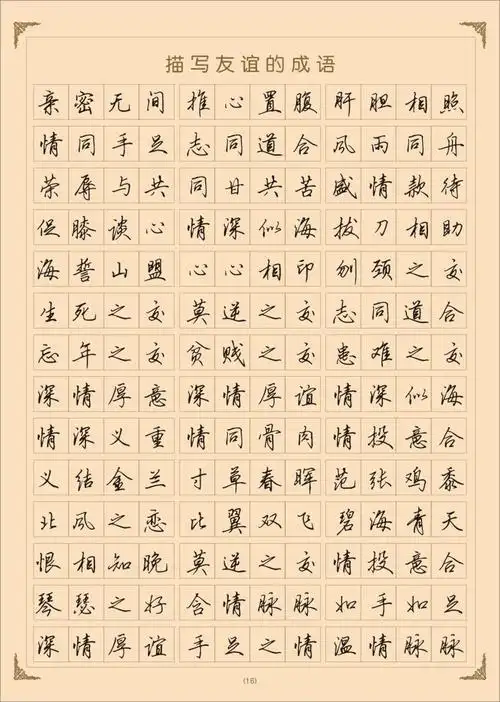 描写友谊的成语
亲密无间 推心置腹 肝胆相照
情同手足 志同道合 风雨同舟
荣辱与共 同甘共苦 盛情款待
促膝谈心 情深似海 拔刀相助
海誓山盟 心心相印 刎颈之交
生死之交 莫逆之交 志同道合
忘年之交 贫贱之交 患难之交
深情厚意 深情厚谊 情深似海
情深义重 情同骨肉 情投意合
义结金兰 寸草春晖 范张鸡黍
北风之恋 比翼双飞 碧海青天
恨相知晚 莫逆之交 情投意合
琴瑟之好 含情脉脉 如手如足
深情厚谊 手足之情 温情脉脉
(16)